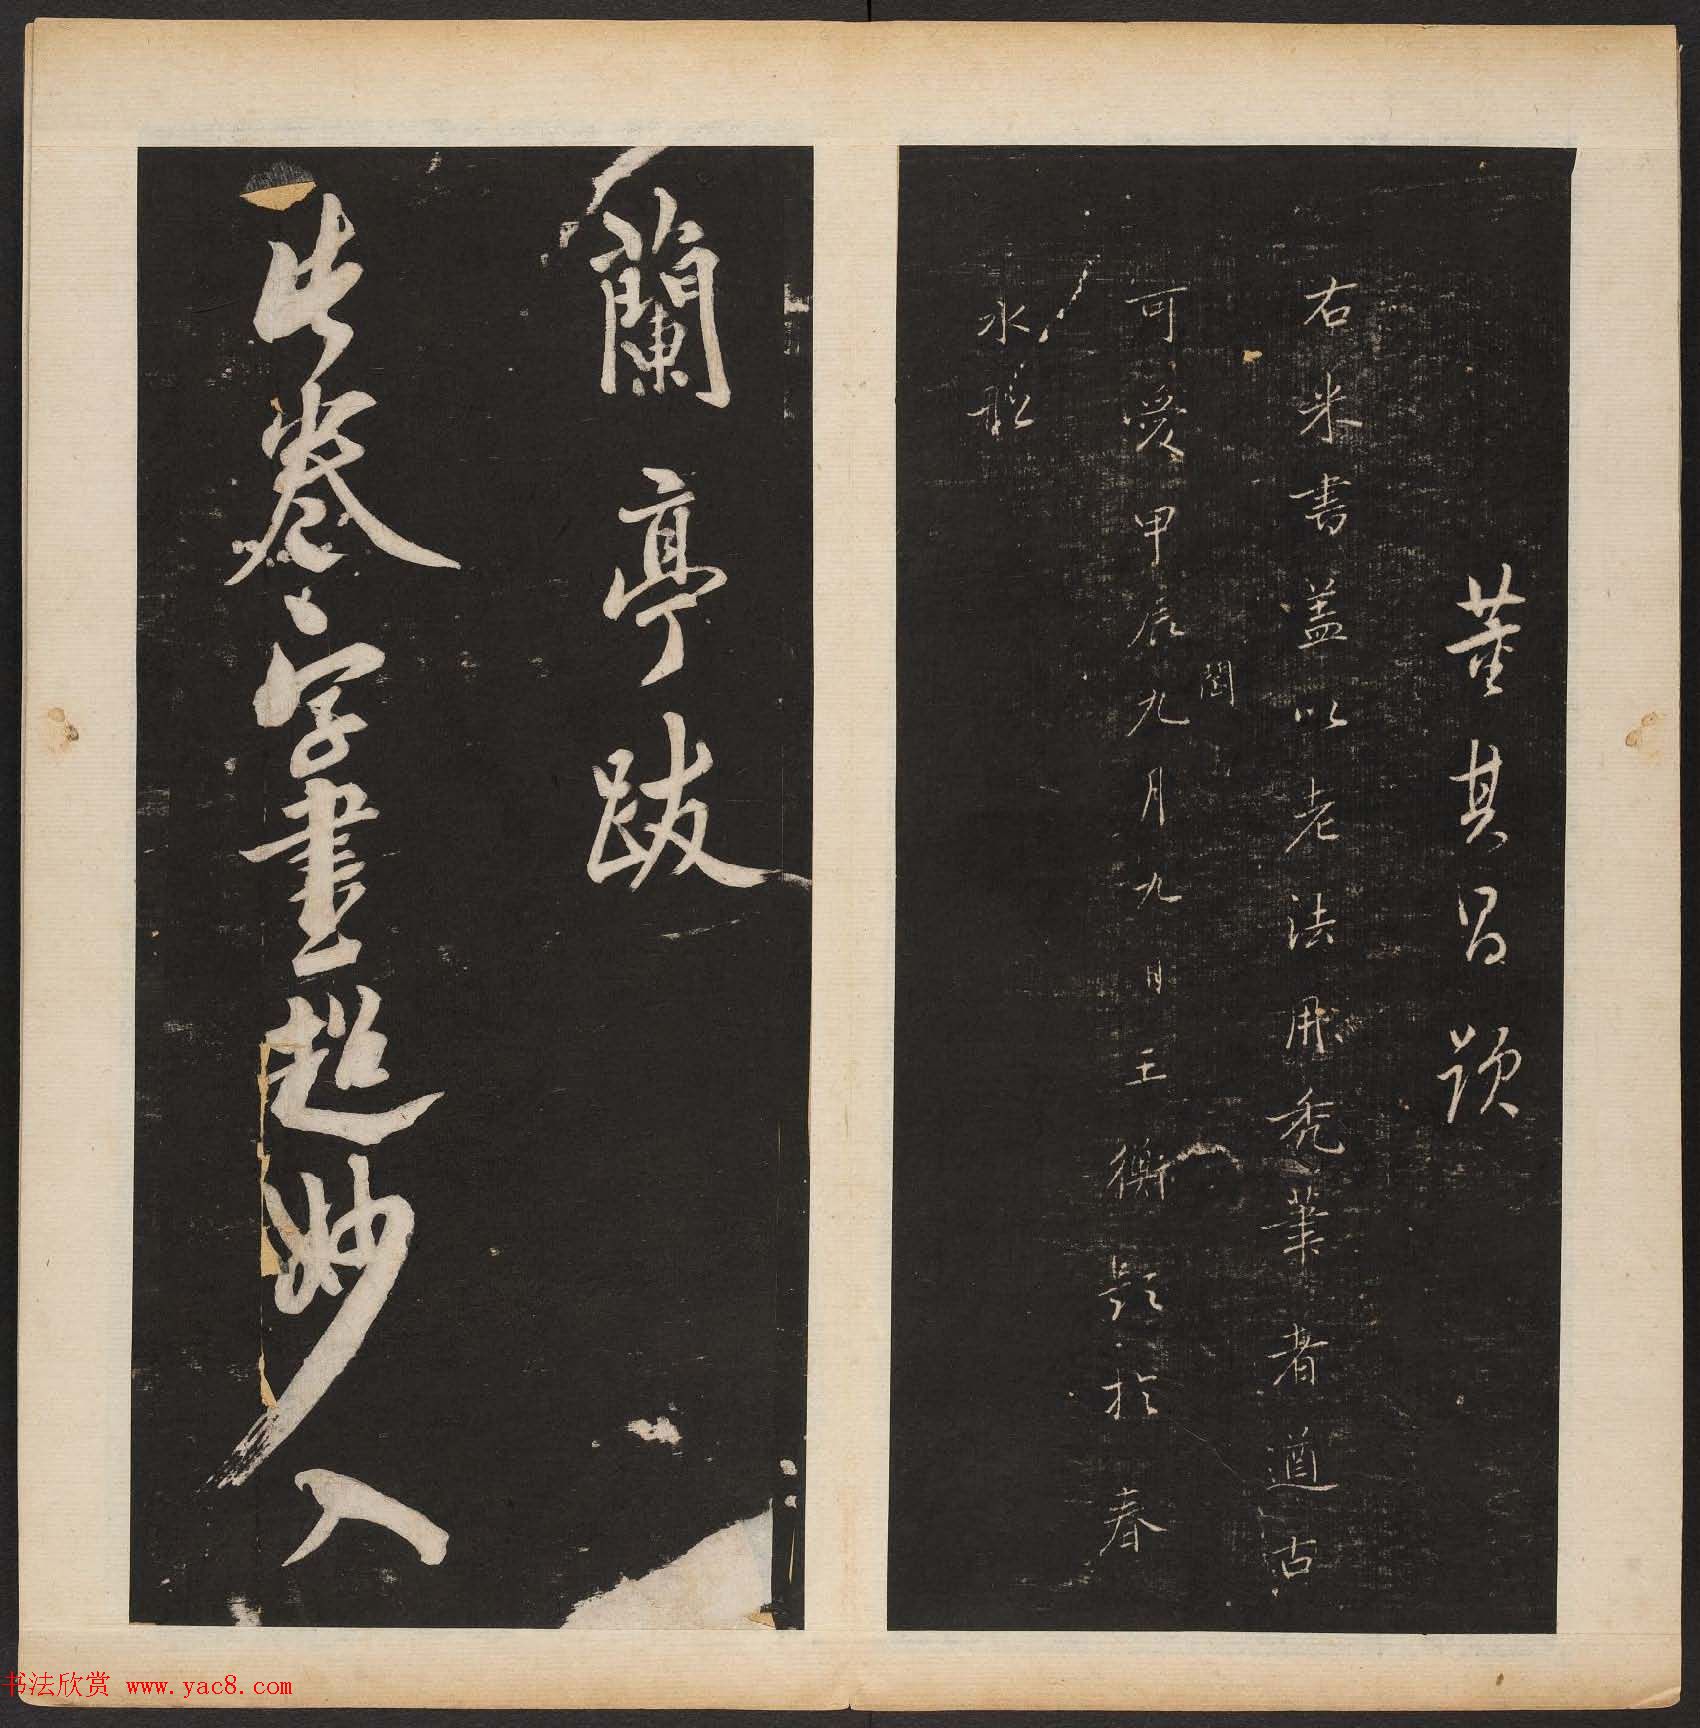 董其昌題
右米書蓋以老法用禿筆者遒古
可愛甲辰九月九日王衡題於春
閏
水船
蘭亭跋
此卷字書超妙入
书法欣赏 www.yac8.com